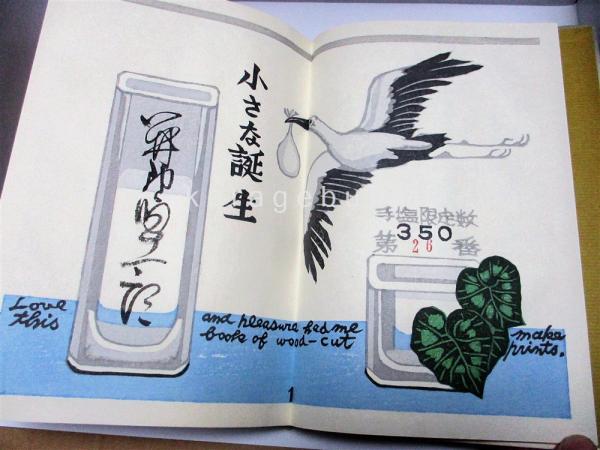 小さな誕生
手塩限定数
350
第 26 番
Love and pleasure had me make
this book of wood-cut prints.
1